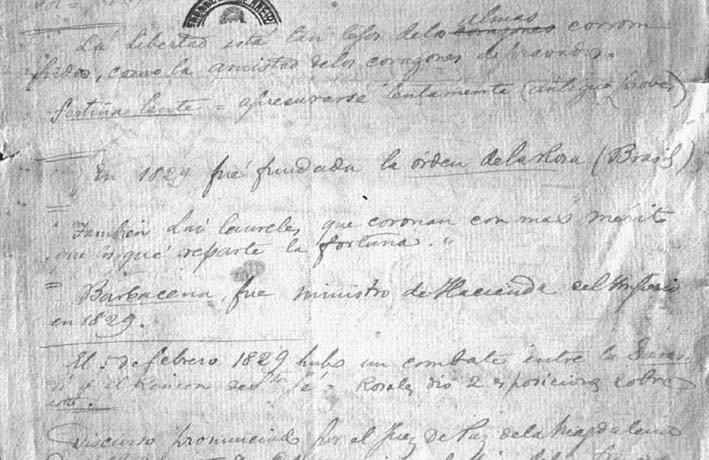 La libertad está tan lejos de las almas corazones corrom
pidas, como la amistad de los corazones depravados.
festina lente = apresurarse lentamente (antiguo prover)
En 1829 fué fundada la órden de la Rosa (Brasil)
También hai laureles que coronan con mas mérito
que los que reparte la fortuna."
Barbacena, fue ministro de Hacienda del Imperio
en 1829.
El 5 de febrero 1829 hubo un combate entre la
y el Rincon Rosales dió 2 esposiciones sobre
esto.
Discurso pronunciado por el Juez de Paz de la Magdalena